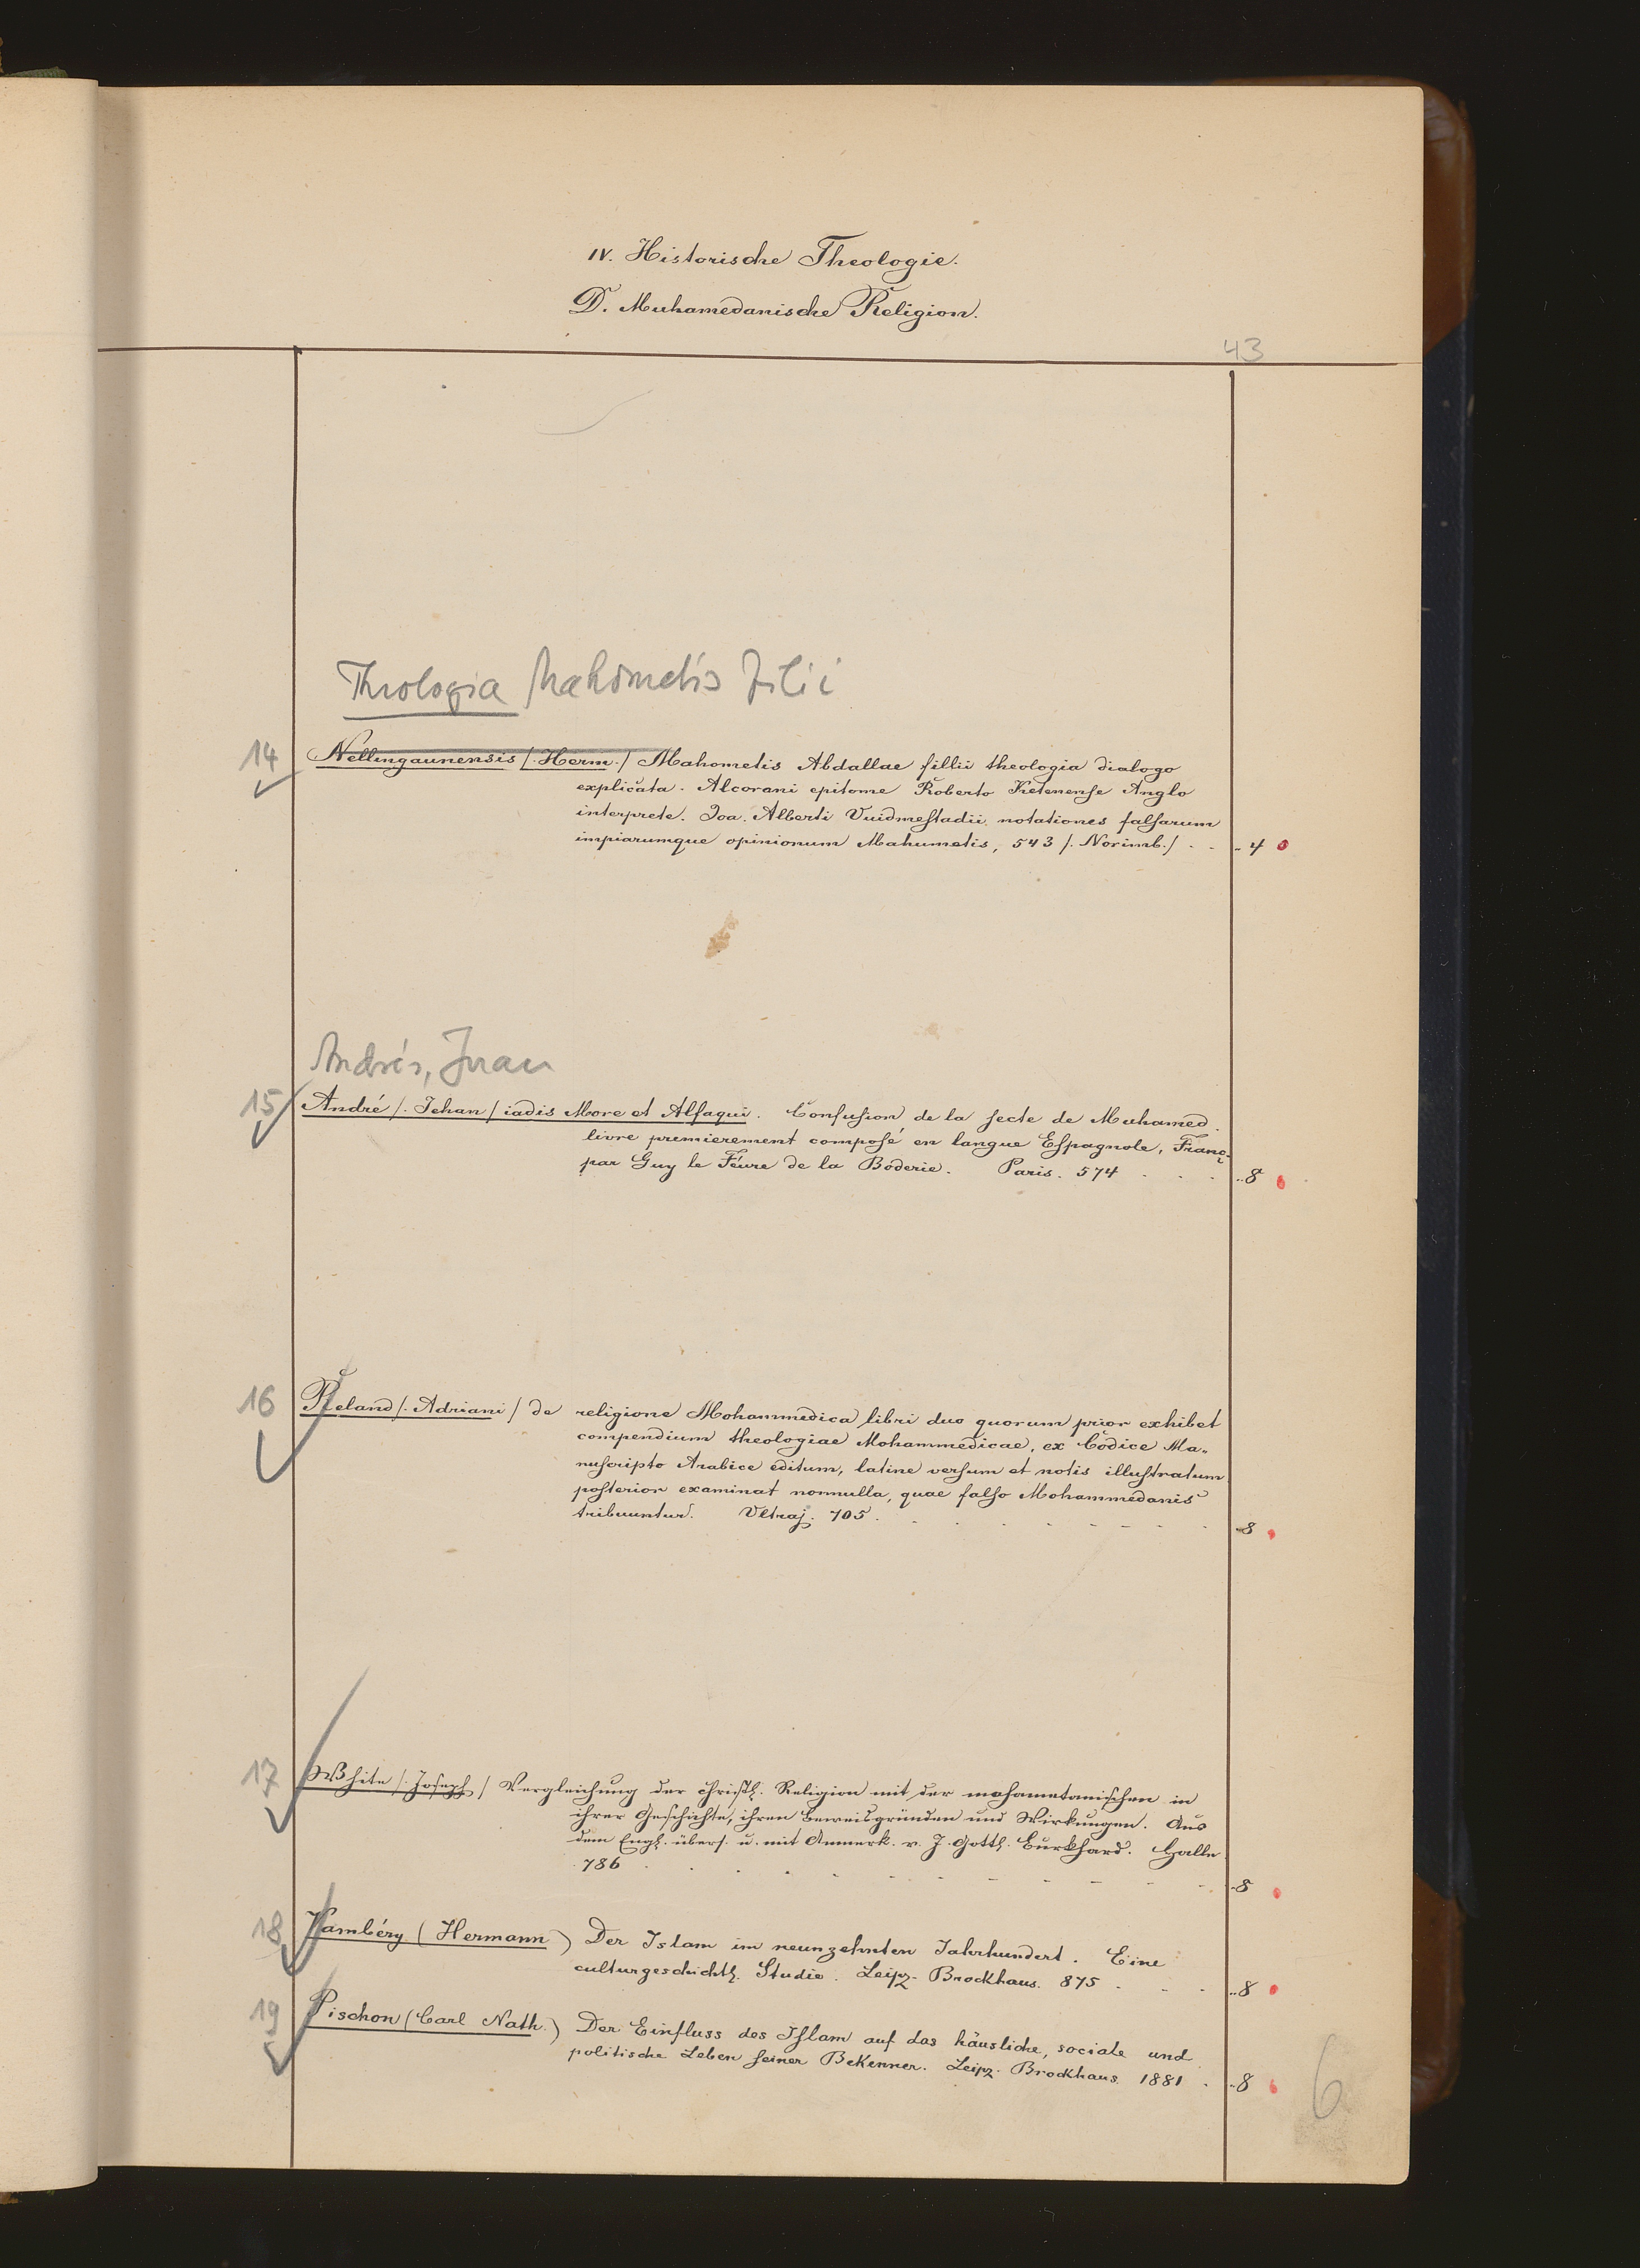 IV. Historische Theologie.
D. Muhamedanische Religion.
43
Theologia Mahometis filii
14 Nellingaunensis /. Herm. / Mahometis Abdallae fillii theologia dialogo
explicata. Alcorani epitome Roberto Ketenense Anglo
interprete. Joa. Alberti Vuidmestadii notationes falsarum
impiarumque opinionum Mahumetis, 543 /. Norimb. / - - .. 4
Andrés, Juan
15 André /. Jehan / iadis More et Alfaqui. Confusion de la secte de Muhamed.
livre premierement composé en langue Espagnole, Franç.
par Guy le Féure de la Boderie. Paris. 574 . . . .. 8
16 Reland /. Adriani / de religione Mohammedica libri duo quorum prior exhibet
compendium theologiae Mohammedicae, ex Codice Ma-
nuscripto Arabice editum, latine versum et notis illustratum
posterior examinat nonnulla, quae falso Mohammedanis
tribuuntur. Vltraj. 705. - - - - - - - .. 8
17 White /. Joseph / Vergleichung der christl. Religion mit der mahometanischen in
ihrer Geschichte, ihren Beweisgründen und Wirkungen. Aus
dem Engl. übers. u. mit Anmerk. v. J. Gottl. Burkhard. Halle
786 . . . . - - - - - - - .. 8
18 Vambéry (Hermann) Der Islam im neunzehnten Jahrhundert. Eine
culturgeschichtl. Studie. Leipz. Brockhaus. 875 . . . .. 8
19 Pischon (Carl Nath.) Der Einfluss des Islam auf das häusliche, sociale und
politische Leben seiner Bekenner. Leipz. Brockhaus. 1881 . .. 8
6